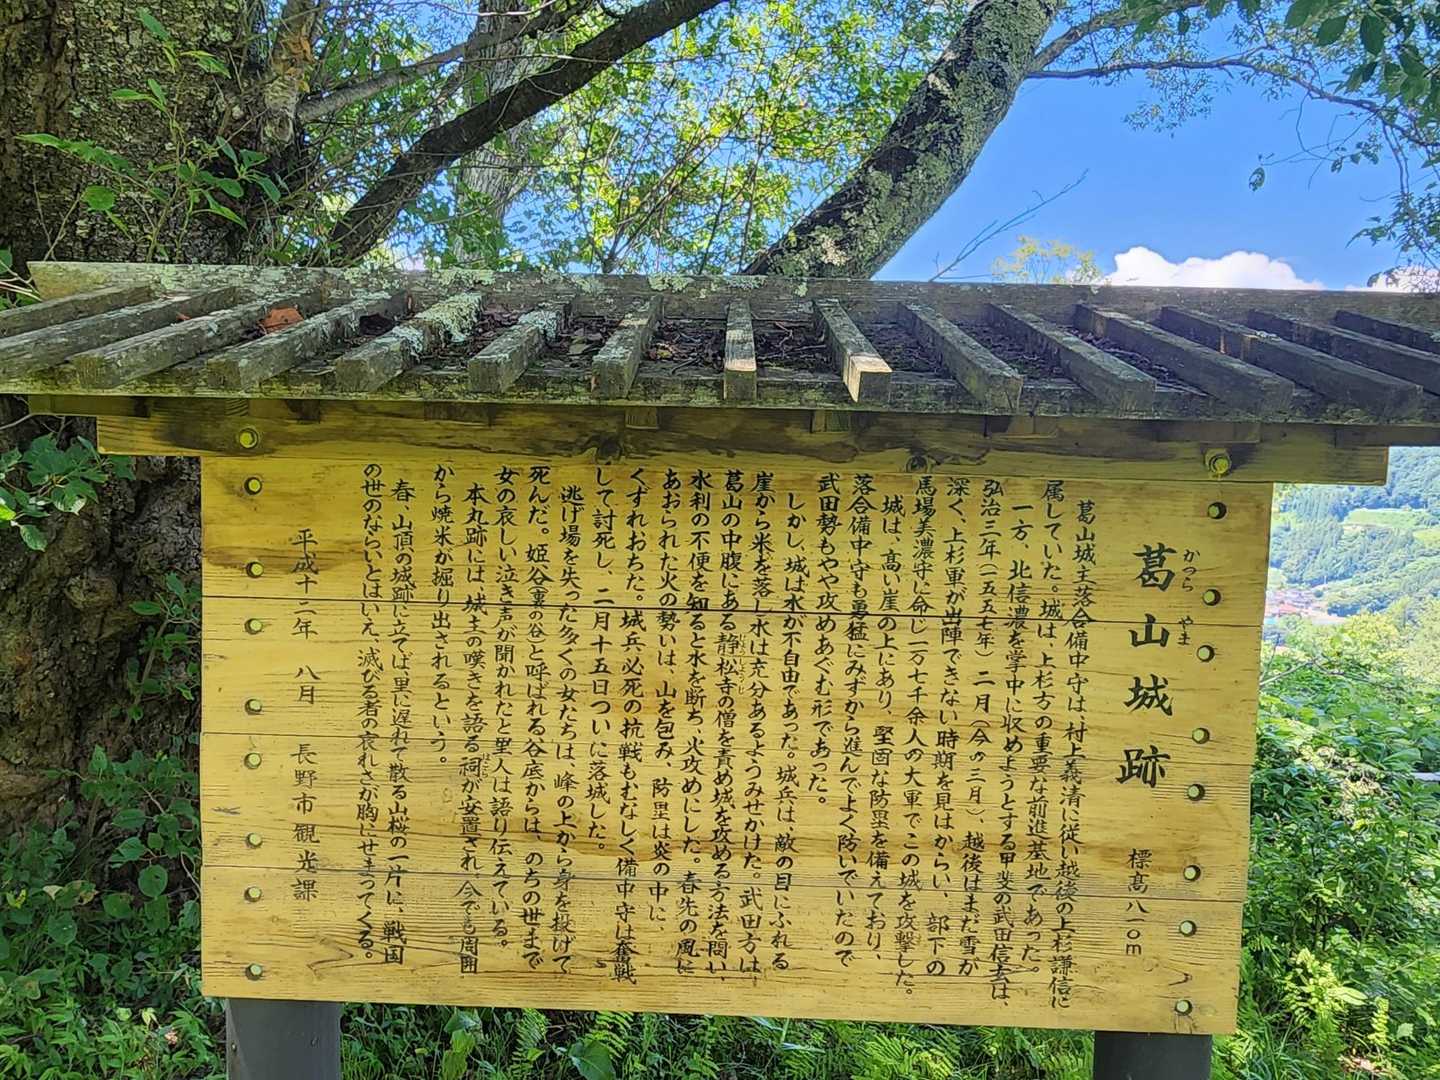 葛山城跡
かつら やま
標高八一〇m
葛山城主落合備中守は、村上義清に従い越後の上杉謙信に
属していた。城は、上杉方の重要な前進基地であった。
一方、北信濃を掌中に収めようとする甲斐の武田信玄は、
弘治三年(一五五七年)二月(今の三月)、越後はまだ雪が
深く、上杉軍が出陣できない時期を見はからい、部下の
馬場美濃守に命じ一万七千余人の大軍でこの城を攻撃した。
城は、高い崖の上にあり、堅固な防塁を備えており、
落合備中守も勇猛にみずから進んでよく防いでいたので
武田勢もやや攻めあぐむ形であった。
しかし、城は水が不自由であった。城兵は、敵の目にふれる
崖から米を落し水は充分あるようみせかけた。武田方は
葛山の中腹にある静松寺の僧を責め城を攻める方法を問い、
じょうしょうじ
水利の不便を知ると水を断ち、火攻めにした。春先の風に
あおられた火の勢いは、山を包み、防塁は炎の中に、
くずれおちた。城兵、必死の抗戦もむなしく備中守は奮戦
して討死し、二月十五日ついに落城した。
逃げ場を失った多くの女たちは、峰の上から身を投げて
死んだ。姫谷(裏の谷)と呼ばれる谷底からは、のちの世まで
女の哀しい泣き声が聞かれたと里人は語り伝えている。
本丸跡には、城主の嘆きを語る祠が安置され、今でも周囲
ほこら
から焼米が掘り出されるという。
春、山頂の城跡に立てば里に遅れて散る山桜の一片に、戦国
の世のならいとはいえ、滅びる者の哀れさが胸にせまってくる。
平成十二年 八月 長野市観光課